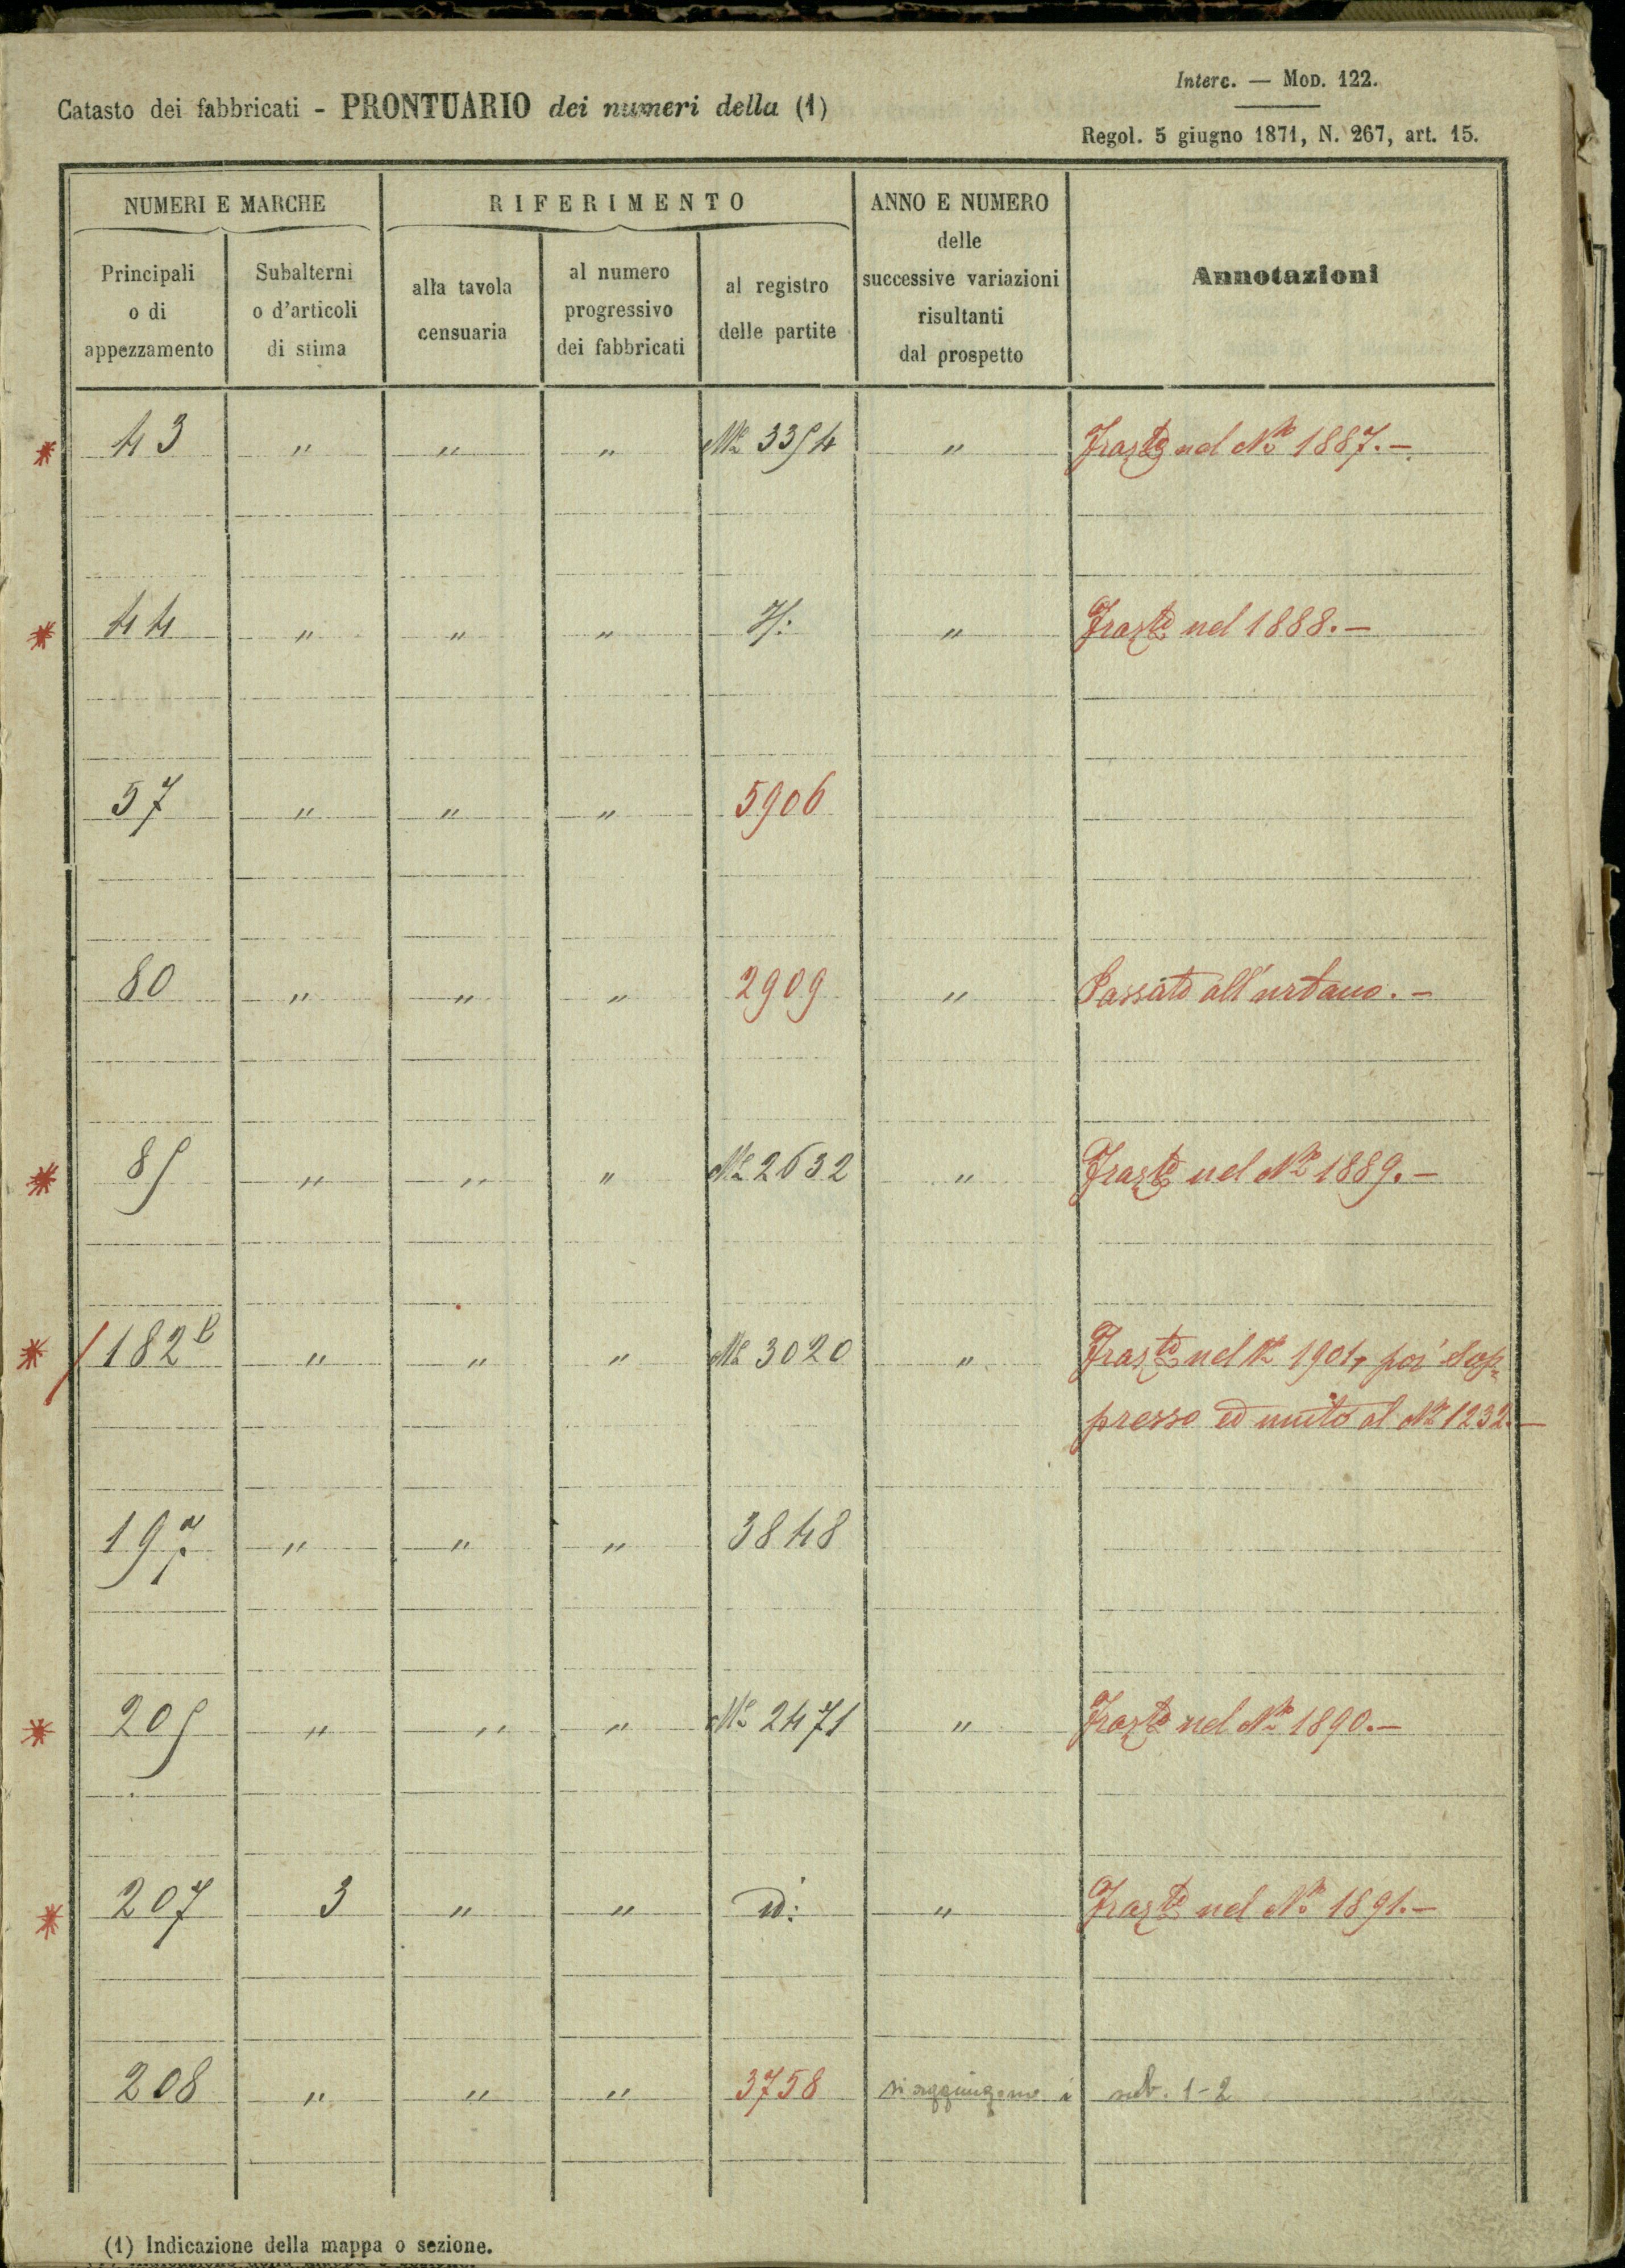 Interc. — Mod. 122.
Catasto dei fabbricati - PRONTUARIO dei numeri della (1)
Regol. 5 giugno 1871, N. 267, art. 15.
NUMERI E MARCHE
RIFERIMENTO
ANNO E NUMERO
delle
successive variazioni
risultanti
dal prospetto
Annotazioni
Principali
o di
appezzamento
Subalterni
o d'articoli
di stima
alla tavola
censuaria
al numero
progressivo
dei fabbricati
al registro
delle partite
* 43 " " " No 3354 " Trasto nel No 1887.-
* 44 " " " " Trasto nel 1888.-
57 " " " 5906
80 " " " 2909 " Passato all'urbano.-
* 85 " " " No 2632 " Trasto nel No 1889.-
* / 182 " " " No 3020 " Trasto nel No 1901, poi sop=
presso ed unito al No 1232.-
197 " " " 3848
* 205 " " " No 2471 " Trasto nel No 1890.-
* 207 3 " " id: " Trasto nel No 1891.-
208 " " " 3758 si aggiungono i sub. 1-2
(1) Indicazione della mappa o sezione.